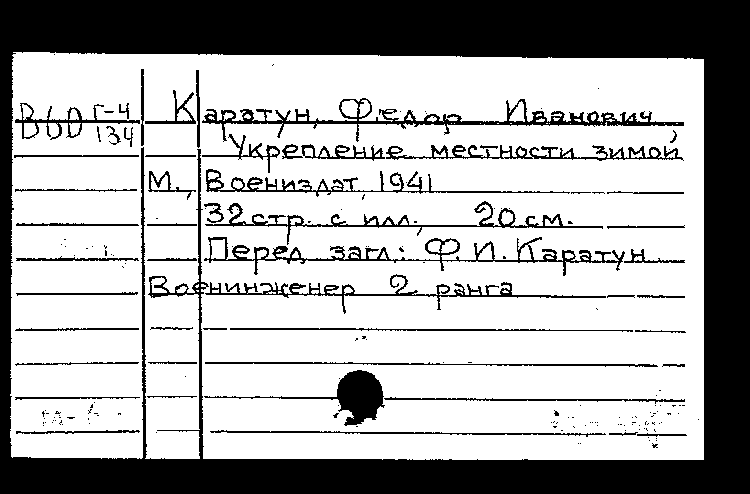 В60 Г-4/134
Каратун, Федор Иванович
Укрепление местности зимой
М., Воениздат, 1941
32 стр. с илл., 20 см.
Перед загл.: Ф. И. Каратун
Военинженер 2 ранга